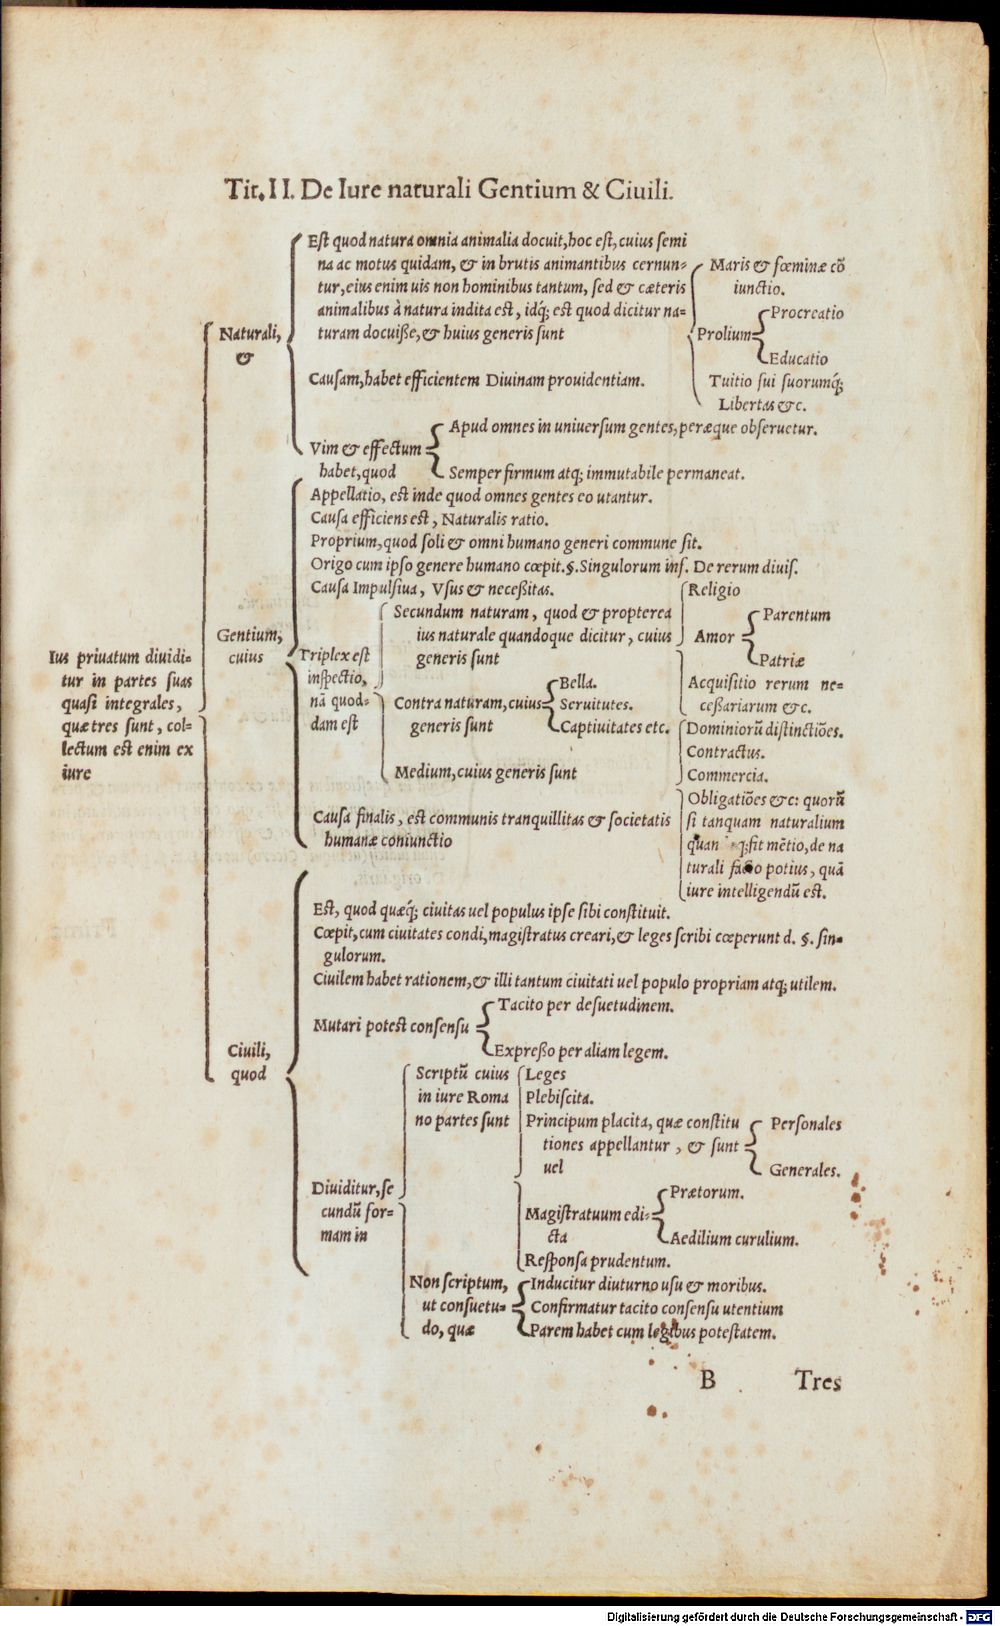 Tit. II. De Iure naturali Gentium & Ciuili.
Ius priuatum diuidi-
tur in partes suas
quasi integrales,
quæ tres sunt, col-
lectum est enim ex
iure
Naturali,
&
Est quod natura omnia animalia docuit, hoc est, cuius semi
na ac motus quidam, & in brutis animantibus cernun-
tur, eius enim uis non hominibus tantum, sed & cæteris
animalibus à natura indita est, idq; est quod dicitur na-
turam docuisse, & huius generis sunt
Maris & fœminæ cō
iunctio.
Prolium
Procreatio
Educatio
Tuitio sui suorumq;
Libertas &c.
Causam, habet efficientem Diuinam prouidentiam.
Vim & effectum
habet, quod
Apud omnes in uniuersum gentes, peræque obseruetur.
Semper firmum atq; immutabile permaneat.
Gentium,
cuius
Appellatio, est inde quod omnes gentes eo utantur.
Causa efficiens est, Naturalis ratio.
Proprium, quod soli & omni humano generi commune sit.
Origo cum ipso genere humano cœpit. §. Singulorum inf. De rerum diuis.
Causa Impulsiua, Vsus & necessitas.
Triplex est
inspectio,
nā quod-
dam est
Secundum naturam, quod & propterea
ius naturale quandoque dicitur, cuius
generis sunt
Religio
Amor
Parentum
Patriæ
Acquisitio rerum ne-
cessariarum &c.
Contra naturam, cuius
generis sunt
Bella.
Seruitutes.
Captiuitates etc.
Medium, cuius generis sunt
Dominiorū distinctiōes.
Contractus.
Commercia.
Obligatiōes &c: quorū
si tanquam naturalium
quan q; sit mētio, de na
turali potius, quā
iure intelligendū est.
Causa finalis, est communis tranquillitas & societatis
humanæ coniunctio
Ciuili,
quod
Est, quod quæq; ciuitas uel populus ipse sibi constituit.
Cœpit, cum ciuitates condi, magistratus creari, & leges scribi cœperunt d. §. sin-
gulorum.
Ciuilem habet rationem, & illi tantum ciuitati uel populo propriam atq; utilem.
Mutari potest consensu
Tacito per desuetudinem.
Expresso per aliam legem.
Diuiditur, se
cundū for-
mam in
Scriptū cuius
in iure Roma
no partes sunt
Leges
Plebiscita.
Principum placita, quæ constitu
tiones appellantur, & sunt
uel
Personales
Generales.
Magistratuum edi-
cta
Prætorum.
Aedilium curulium.
Responsa prudentum.
Non scriptum,
ut consuetu-
do, quæ
Inducitur diuturno usu & moribus.
Confirmatur tacito consensu utentium
Parem habet cum legibus potestatem.
B Tres
Digitalisierung gefördert durch die Deutsche Forschungsgemeinschaft - DFG